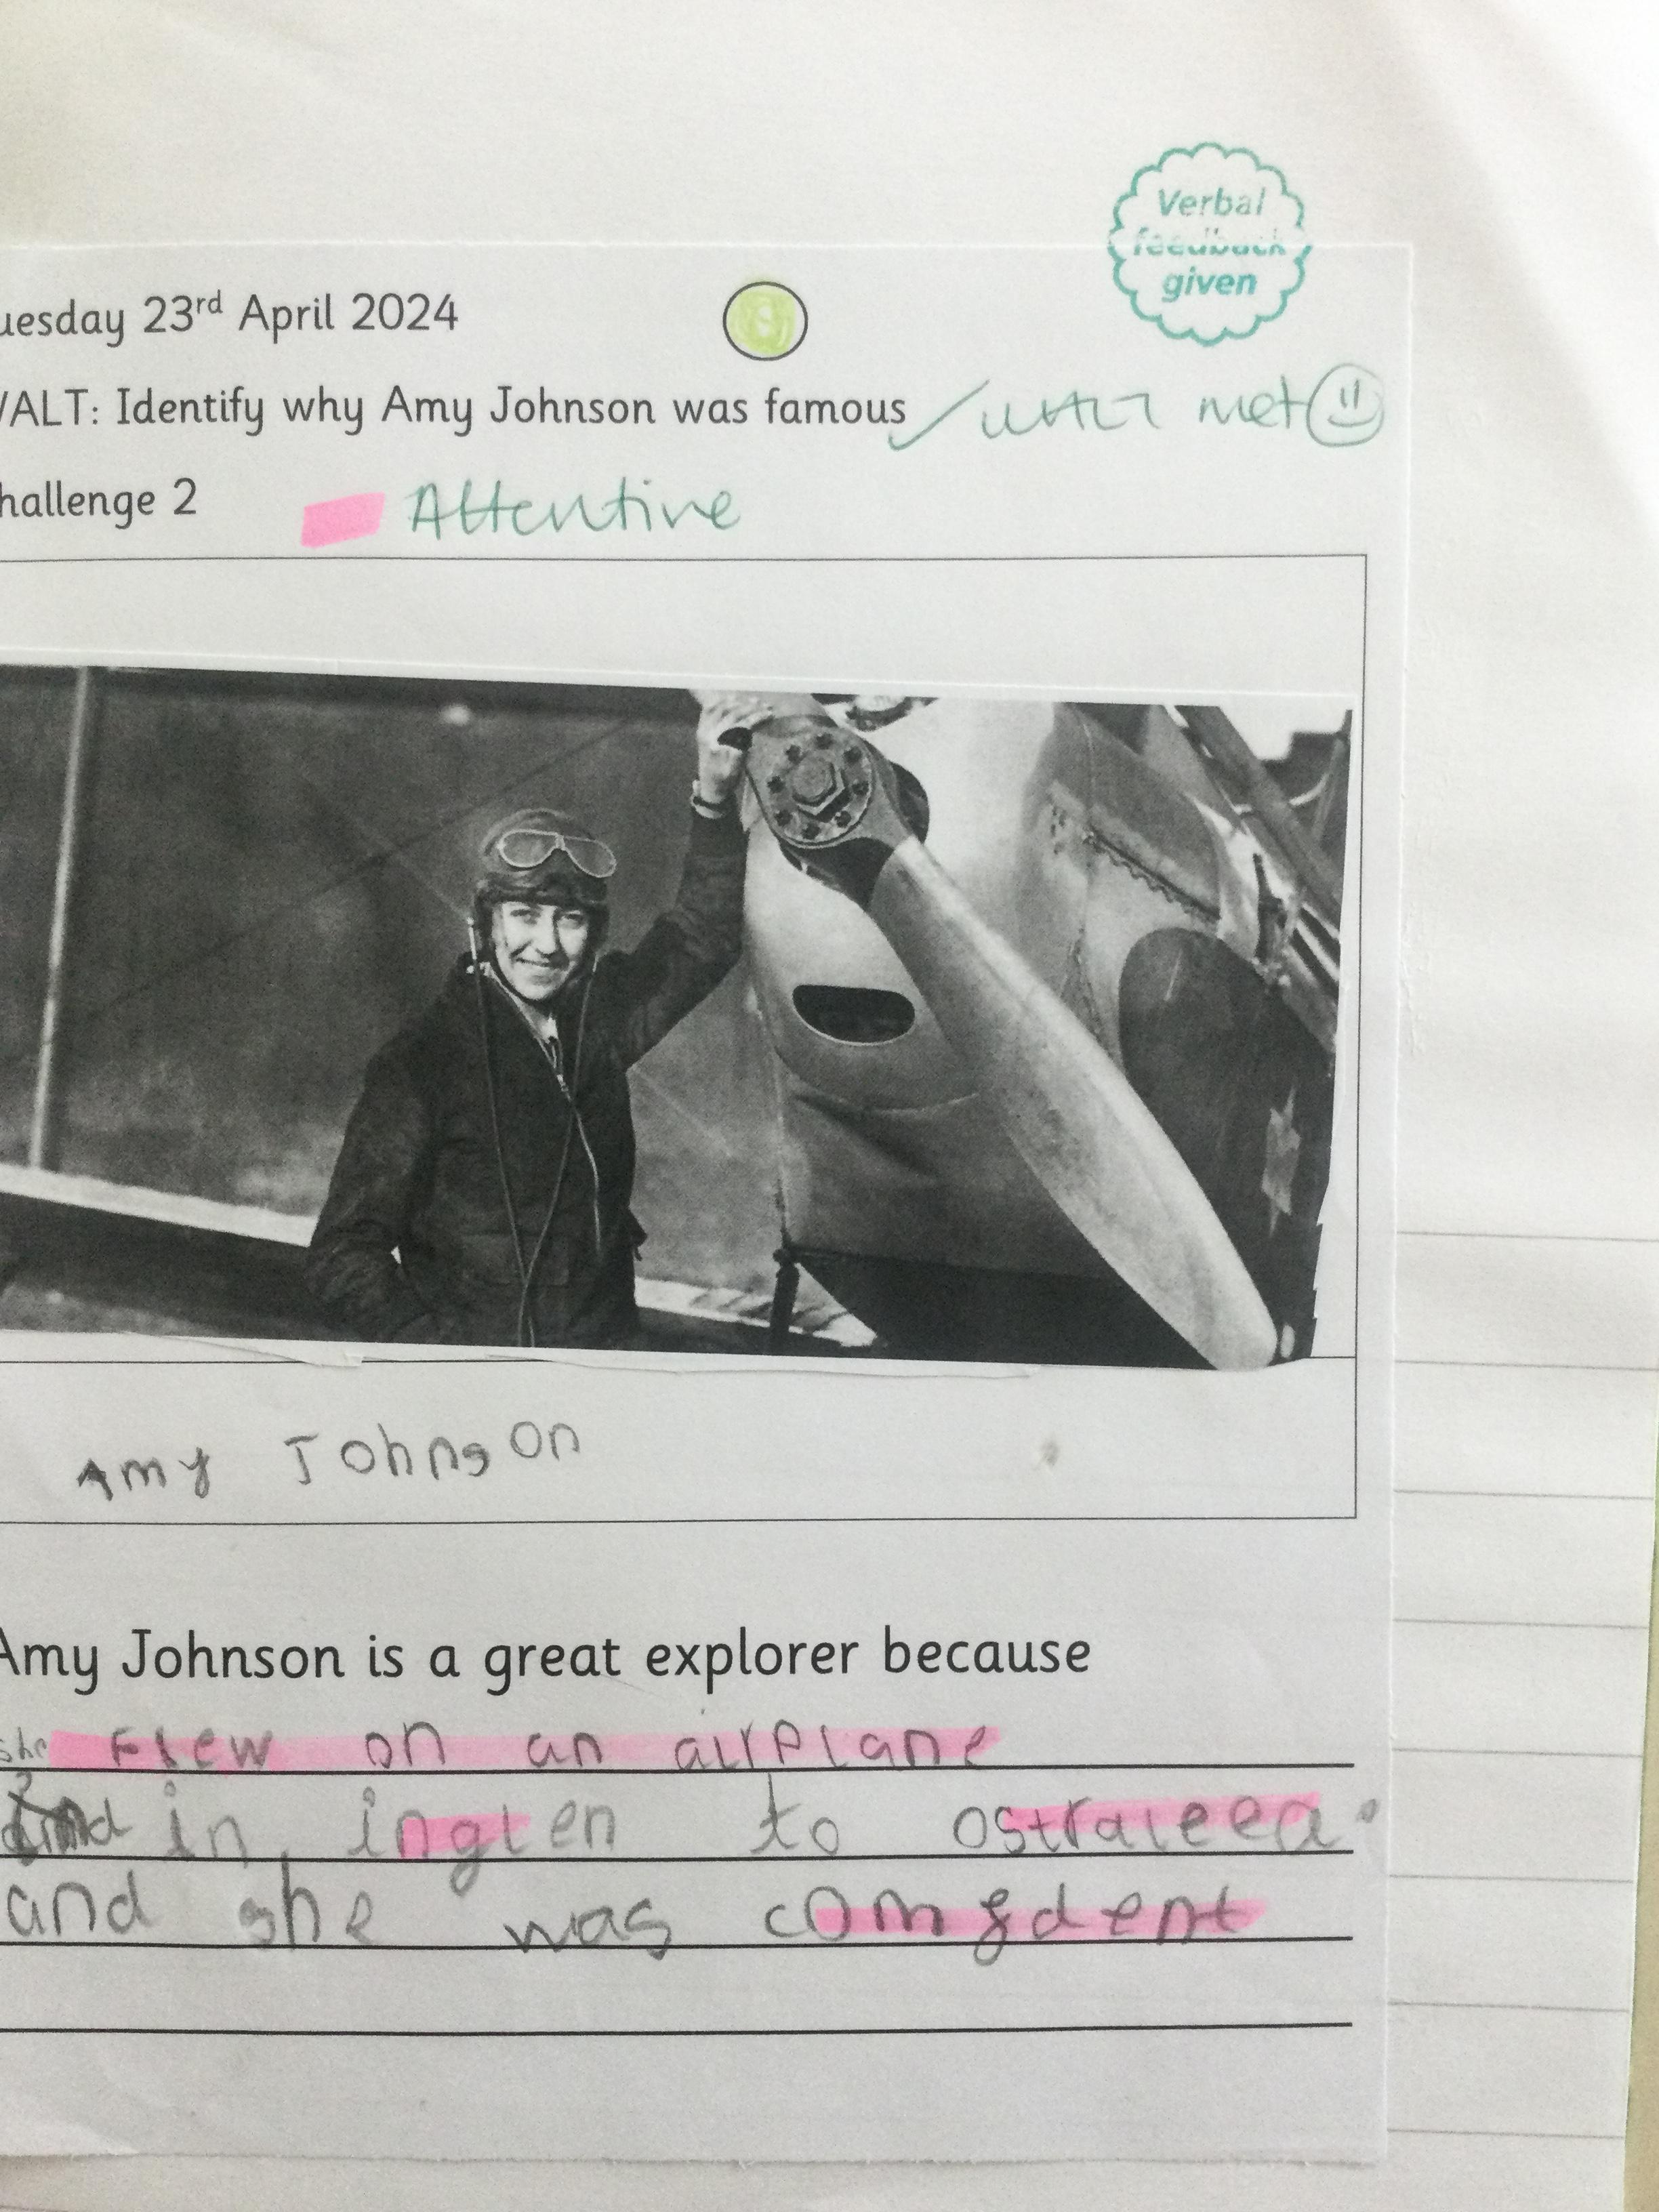 Verbal
feedback
given
uesday 23rd April 2024
/ALT: Identify why Amy Johnson was famous WALT met
hallenge 2 Attentive
Amy Johnson
Amy Johnson is a great explorer because
she flew on an airplane
in inglen to ostraleea.
and she was comfdent